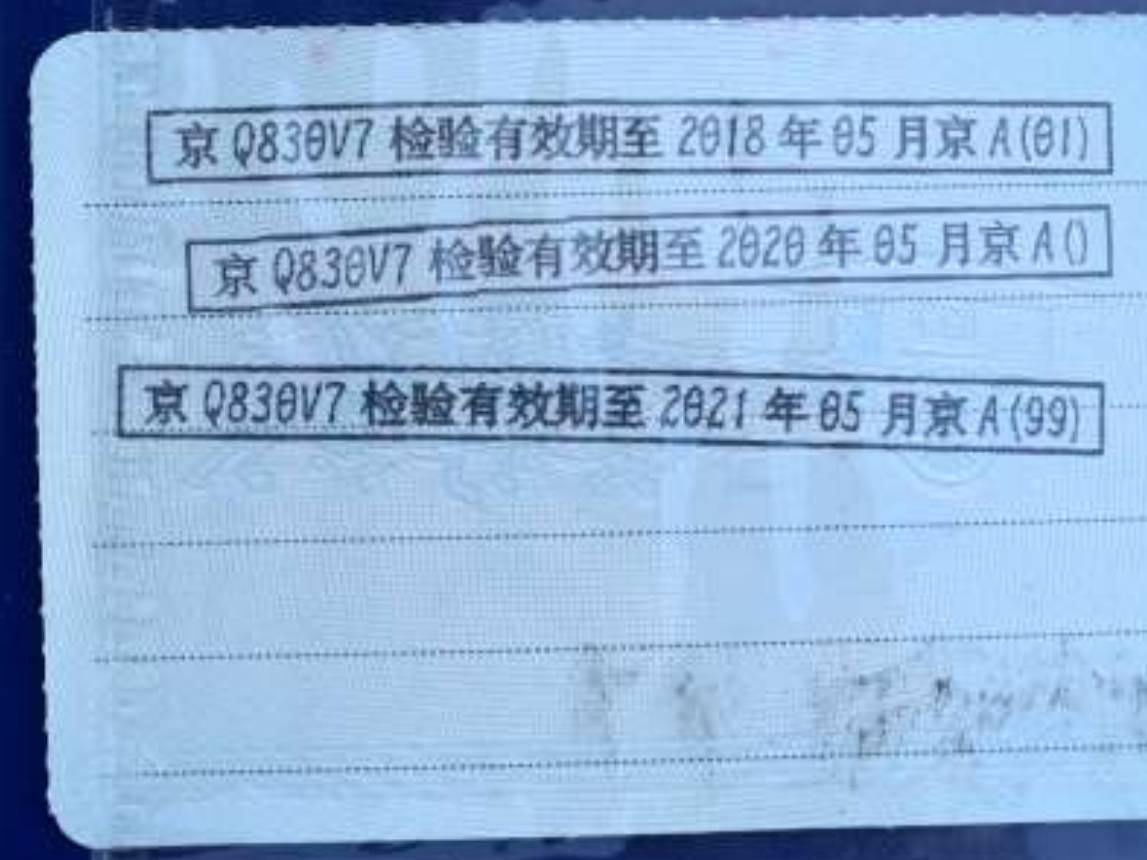 京Q830V7 检验有效期至2018年05月京A(01)
京Q830V7 检验有效期至2020年05月京A()
京Q830V7 检验有效期至2021年05月京A(99)